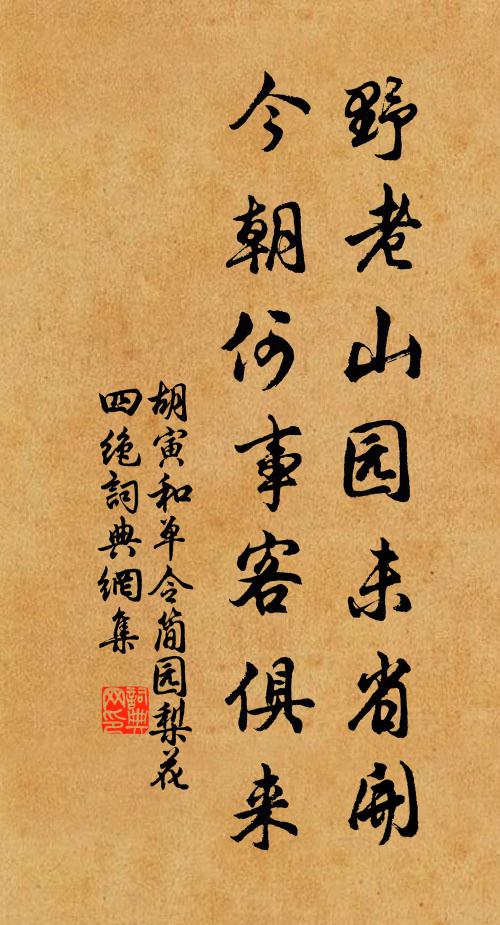 野老山园未省开
今朝何事客俱来
胡寅和单令简园梨花
四绝詞典網集
詞典网印